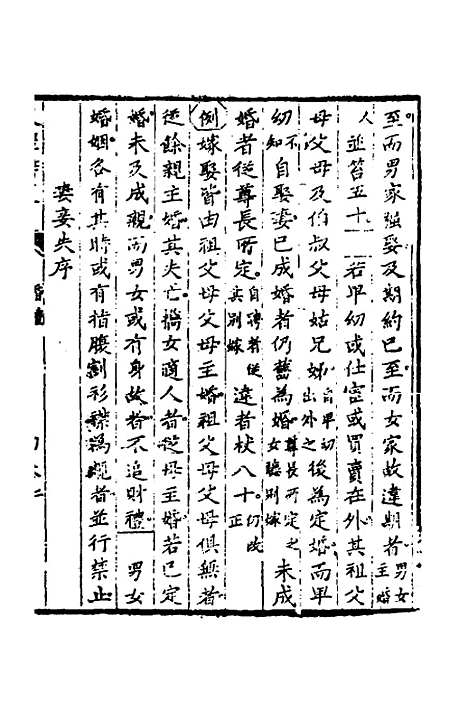 至而男家強娶及期約已至而女家故違期者男女主婚
人並笞五十　若卑幼或仕宦或買賣在外其祖父
母父母及伯叔父母姑兄姊自卑幼出外之後為定婚而卑
幼不知自娶妻已成婚者仍舊為婚尊長所定之女聽別嫁未成
婚者從尊長所定自聘者從其別嫁違者杖八十仍改正
例嫁娶皆由祖父母父母主婚祖父母父母俱無者
從餘親主婚其夫亡攜女適人者從母主婚若已定
婚未及成親而男女或有身故者不追財禮　男女
婚姻各有其時或有指腹割衫襟為親者並行禁止
妻妾失序